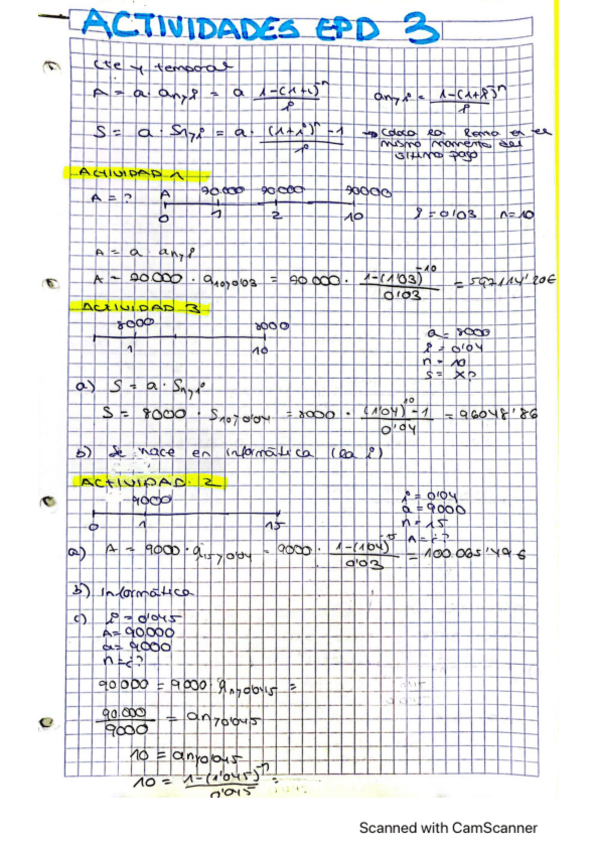 ACTIVIDADES EPD 3
cte y temporal
A = a · an¬i = a (1-(1+i)^-n)/i    an¬i = (1-(1+i)^-n)/i
S = a · Sn¬i = a · ((1+i)^n - 1)/i → coloca la Renta en el
mismo momento del
último pago
ACTIVIDAD 1
A = ?  A  70.000  70.000  70000
0  1  2  10    i = 0'03  n = 10
A = a · an¬i
A = 70.000 · a10¬0'03 = 70.000 · (1-(1'03)^-10)/0'03 = 597114'20€
ACTIVIDAD 3
8000  8000
1  10
a = 8000
i = 0'04
n = 10
S = x?
a) S = a · Sn¬i
S = 8000 · S10¬0'04 = 8000 · ((1'04)^10 - 1)/0'04 = 96048'86
b) Se hace en informática (la i)
ACTIVIDAD 2
9000
0  1  15
i = 0'04
a = 9000
n = 15
A = ¿?
a) A = 9000 · a15¬0'04 = 9000 · (1-(1'04)^-15)/0'03 = 100.065'49€
b) Informática
c) i = 0'045
A = 90.000
a = 9000
n = ¿?
90000 = 9000 · an¬0'045 =
90.000/9000 = an¬0'045
10 = an¬0'045
10 = (1-(1'045)^-n)/0'045 =
Scanned with CamScanner